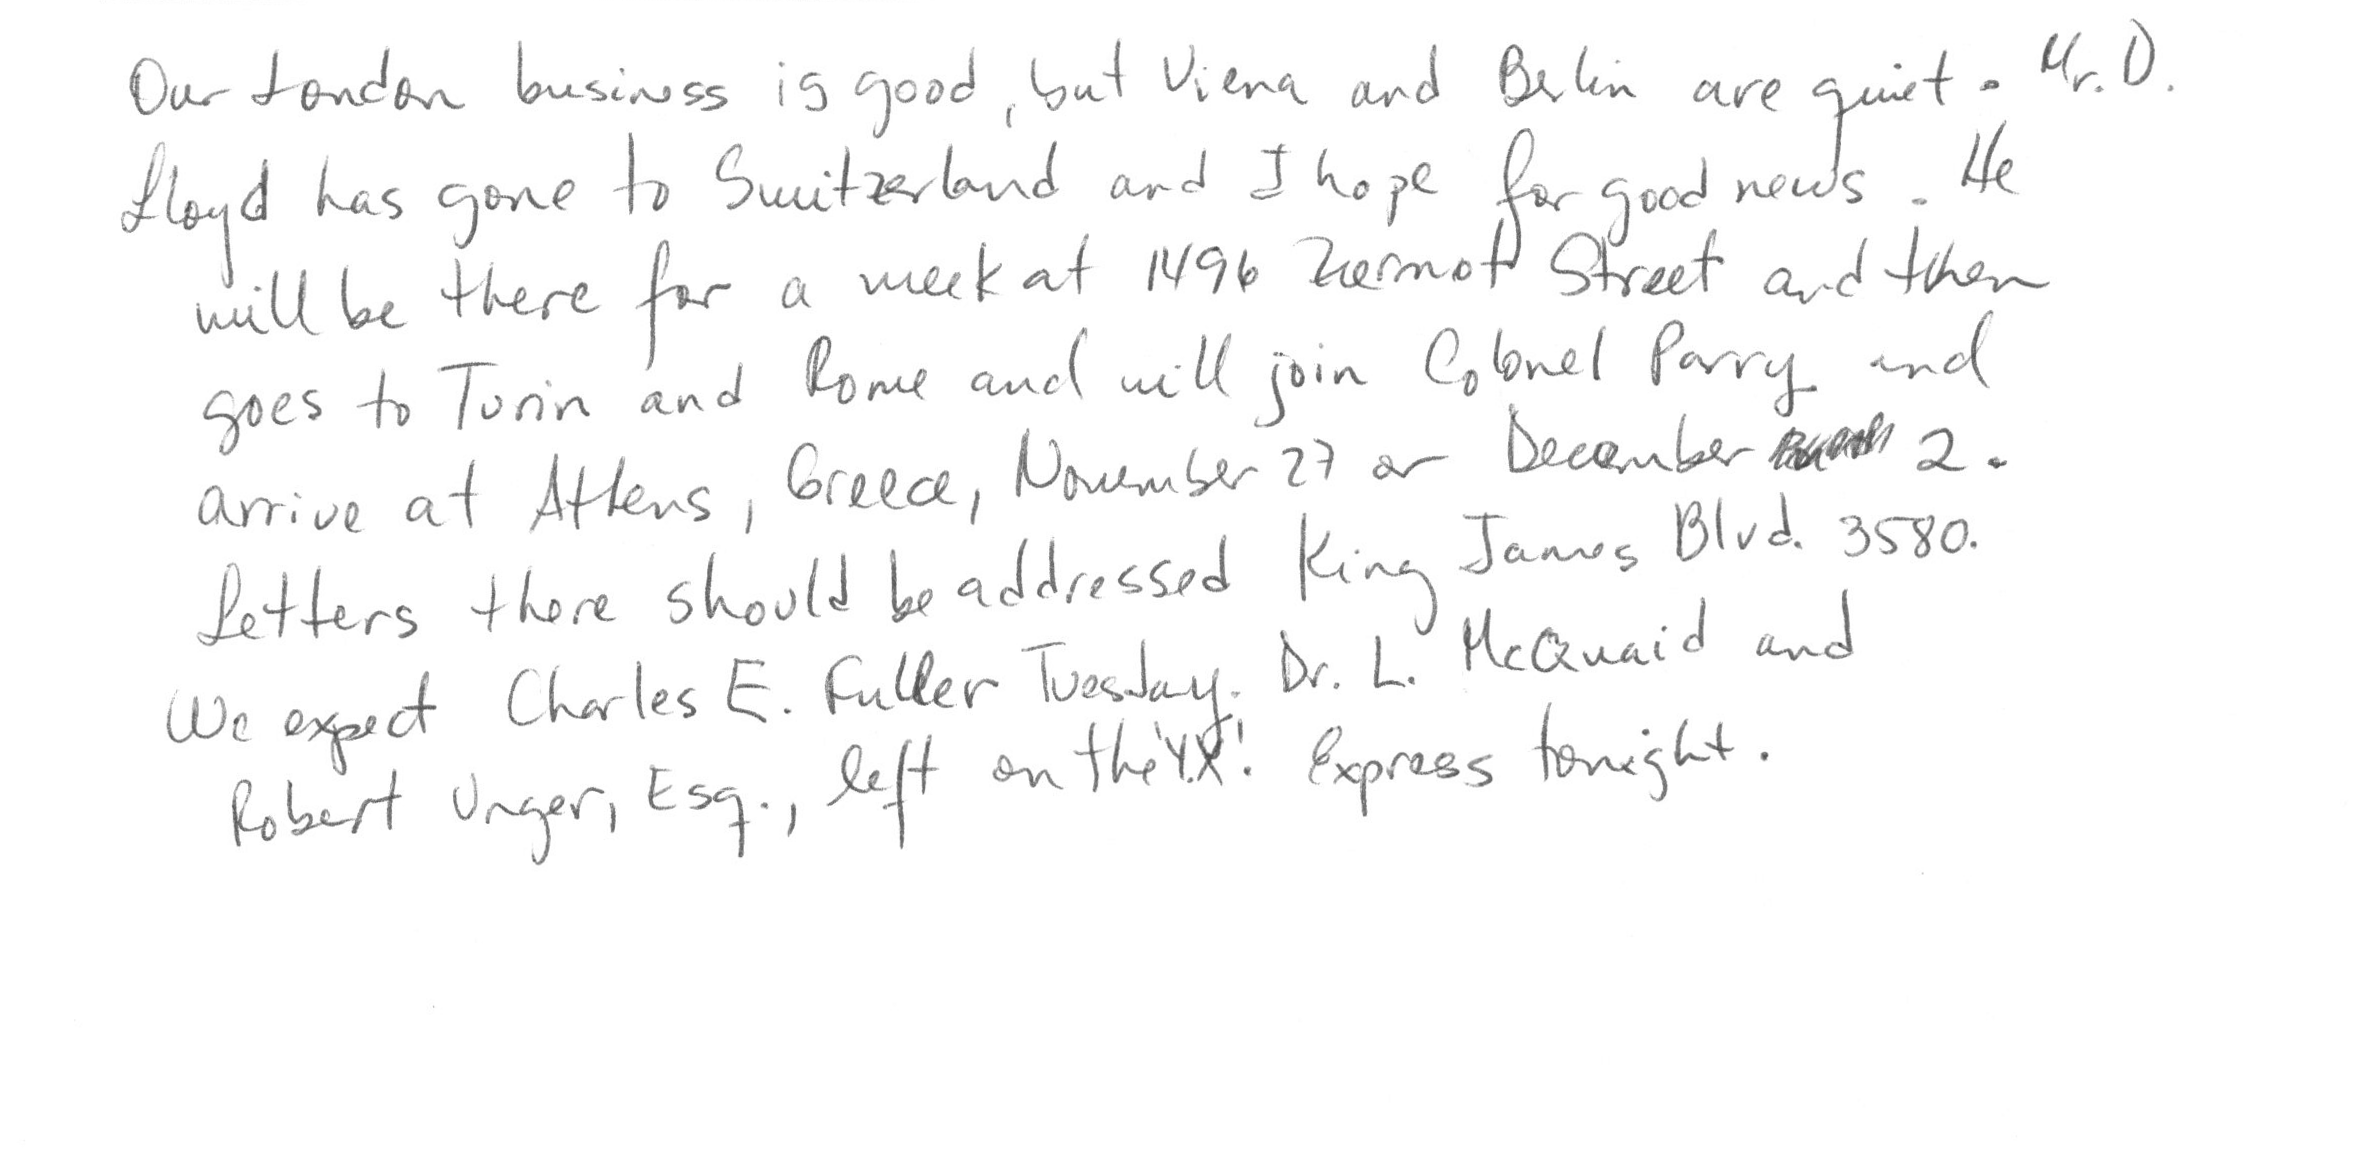 Our London business is good, but Viena and Berlin are quiet. Mr. D.
Lloyd has gone to Switzerland and I hope for good news. He
will be there for a week at 1496 Zermot Street and then
goes to Turin and Rome and will join Colonel Parry and
arrive at Athens, Greece, November 27 or December 2.
Letters there should be addressed King James Blvd. 3580.
We expect Charles E. Fuller Tuesday. Dr. L. McQuaid and
Robert Unger, Esq., left on the 'Y.X'. Express tonight.